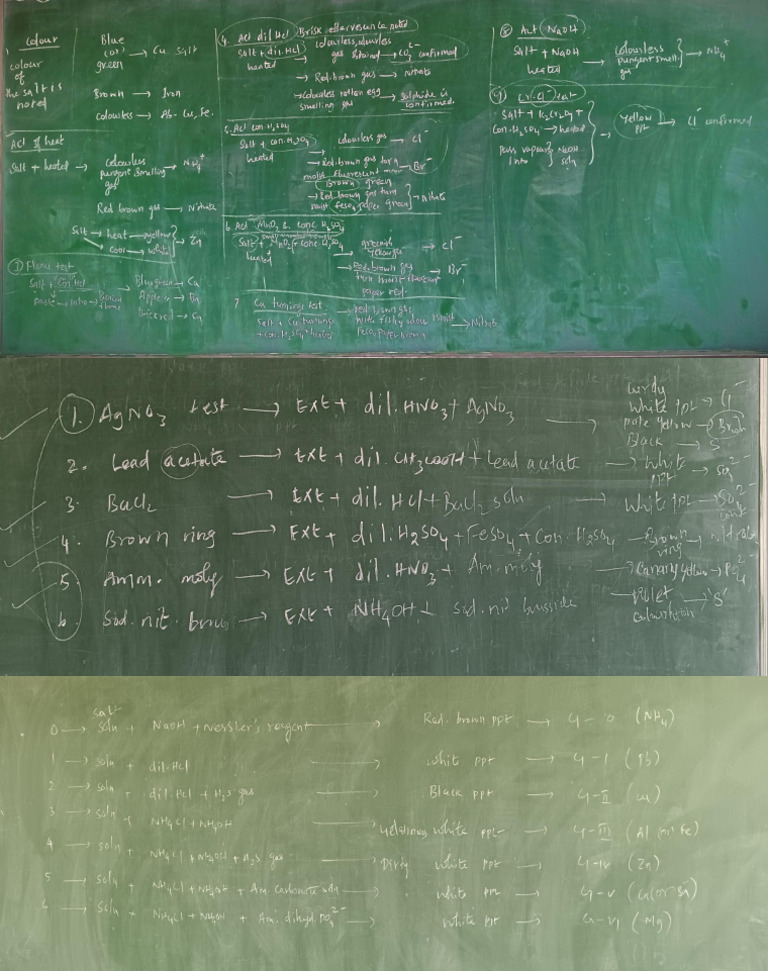 1. colour
colour
of
the salt is
noted
Blue
(or) → Cu salt
green
Brown → Iron
colourless → Pb- Cu, Fe.
Act of heat
Salt + heated → colourless
pungent smelling → NH4+
gas
Red brown gas → Nitrate
Salt → heat → yellow
→ cool → white } → Zn
3) Flame test
Salt + Con. Hcl
paste → into → Bunsen
flame
Blue green → Cu
Apple → Ba
Brick red → Ca
4. Act dil Hcl Brisk effervescence noted
Salt + dil. Hcl
heated
colourless, odourless
gas → CO3 2- confirmed
→ Red. brown gas → Nitrate
→ colourless rotten egg
smelling gas → Sulphide is
confirmed.
5. Act con. H2SO4
Salt + con. H2SO4
heated
→ colourless gas → Cl-
→ Red. brown gas turn
moist fluorescent → Br-
Brown green
→ Red. brown gas turn
moist FeSO4 paper green } → Nitrate
6 Act MnO2 & conc H2SO4
Salt + MnO2 + conc. H2SO4
heated
→ greenish
yellow → Cl-
→ Red. brown gas
turn moist
paper red. → Br-
7 Cu turnings test
Salt + Cu turnings
+ con. H2SO4 + heated
→ red. brown gas
with fishy odour → Nitrate
FeSO4 paper brown
8 Act NaOH
Salt + NaOH
heated
→ colourless
pungent smell.
gas } → NH4+
9) Cr-Cl- test
Salt + K2Cr2O7 +
Con. H2SO4 → heated
pass vapour } NaOH
into soln
→ Yellow
ppt → Cl- confirmed
1. AgNO3 test → Ext + dil. HNO3 + AgNO3 →
Curdy
white ppt → Cl-
pale yellow → Brom
Black → S
2. Lead acetate → Ext + dil. CH3COOH + Lead acetate → White
ppt → SO4 2-
3. BaCl2 → Ext + dil. Hcl + BaCl2 soln → White ppt →
4. Brown ring → Ext + dil. H2SO4 + FeSO4 + Con. H2SO4 → Brown
ring → nitrate
5. Amm. moly → Ext + dil. HNO3 + Am. moly → Canary yellow → PO4
6. Sod. nit. → Ext + NH4OH + Sod. nit → violet
colouration → 'S'
salt
0 → soln + NaOH + Nessler's reagent → Red. brown ppt → G-0 (NH4)
1 → soln + dil. Hcl → White ppt → G-I (Pb)
2 → soln + dil. Hcl + H2S gas → Black ppt → G-II (Cu)
3 → soln + NH4Cl + NH4OH → white ppt → G-III (Al (or) Fe)
4 → soln + NH4Cl + NH4OH + H2S gas → Dirty white ppt → G-IV (Zn)
5 → soln + NH4Cl + NH4OH + Am. Carbonate soln → white ppt → G-V (Ca (or) Ba)
6 → soln + NH4Cl + NH4OH + Am. dihyd. PO4 → White ppt → G-VI (Mg)